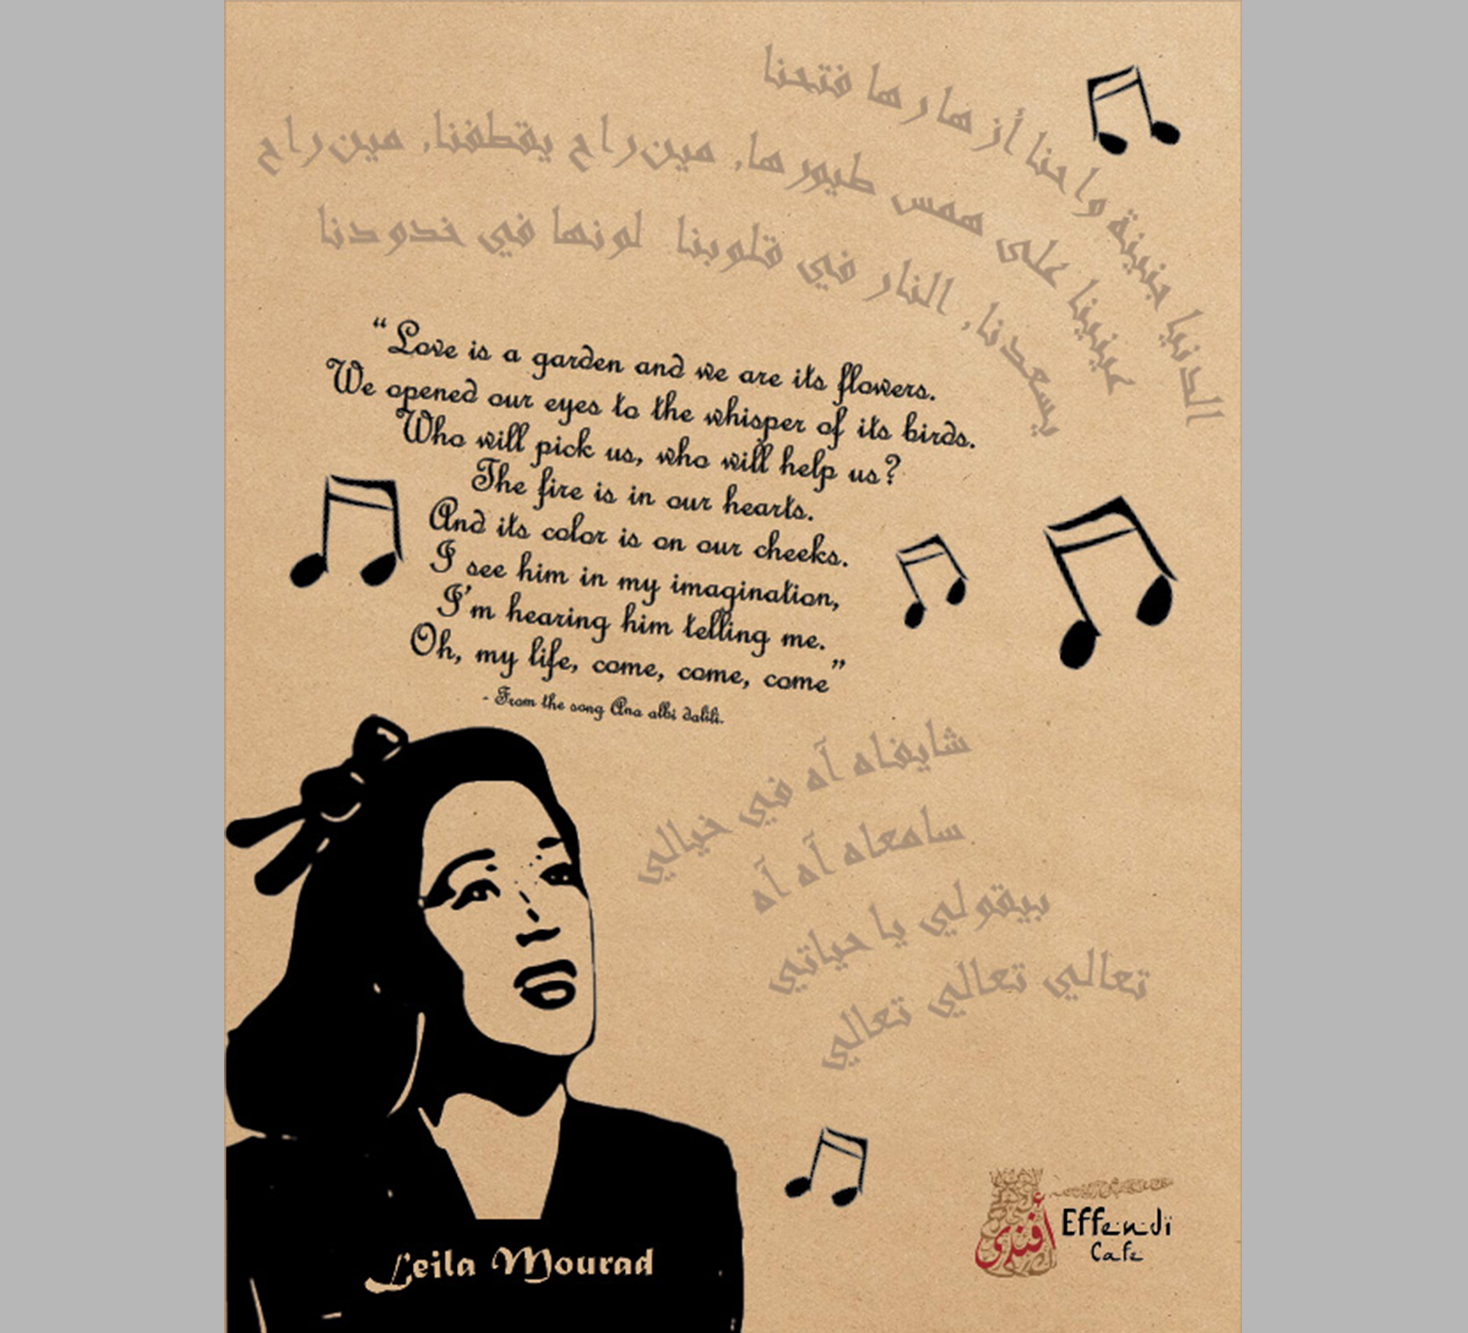 الدنيا جنينة واحنا أزهارها فتحنا
عينينا على همس طيورها, مين راح يقطفنا, مين راح
يسعدنا, النار في قلوبنا لونها في خدودنا
“Love is a garden and we are its flowers.
We opened our eyes to the whisper of its birds.
Who will pick us, who will help us?
The fire is in our hearts.
And its color is on our cheeks.
I see him in my imagination,
I'm hearing him telling me.
Oh, my life, come, come, come”
- From the song Ana albi dalili.
شايفاه آه في خيالي
سامعاه آه آه
بيقولي يا حياتي
تعالي تعالي تعالي
Leila Mourad
أفندي
Effendi
Cafe